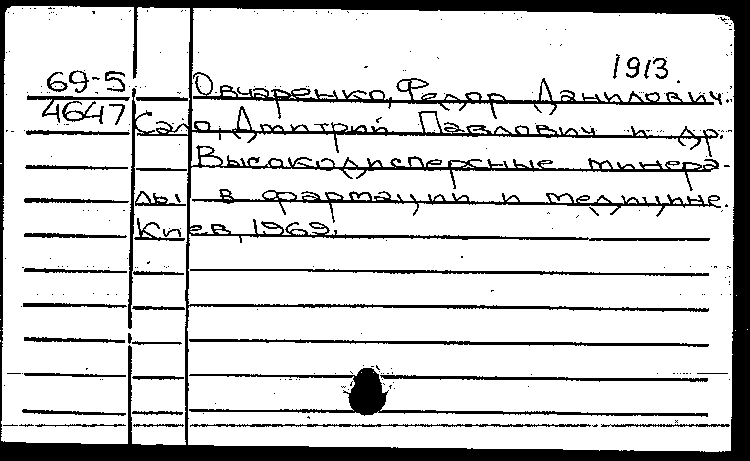 1913.
69-5 Овчаренко, Федор Данилович.
4647 Сало, Дмитрий Павлович и др.
Высокодисперсные минера-
лы в фармации и медицине.
Киев, 1969.